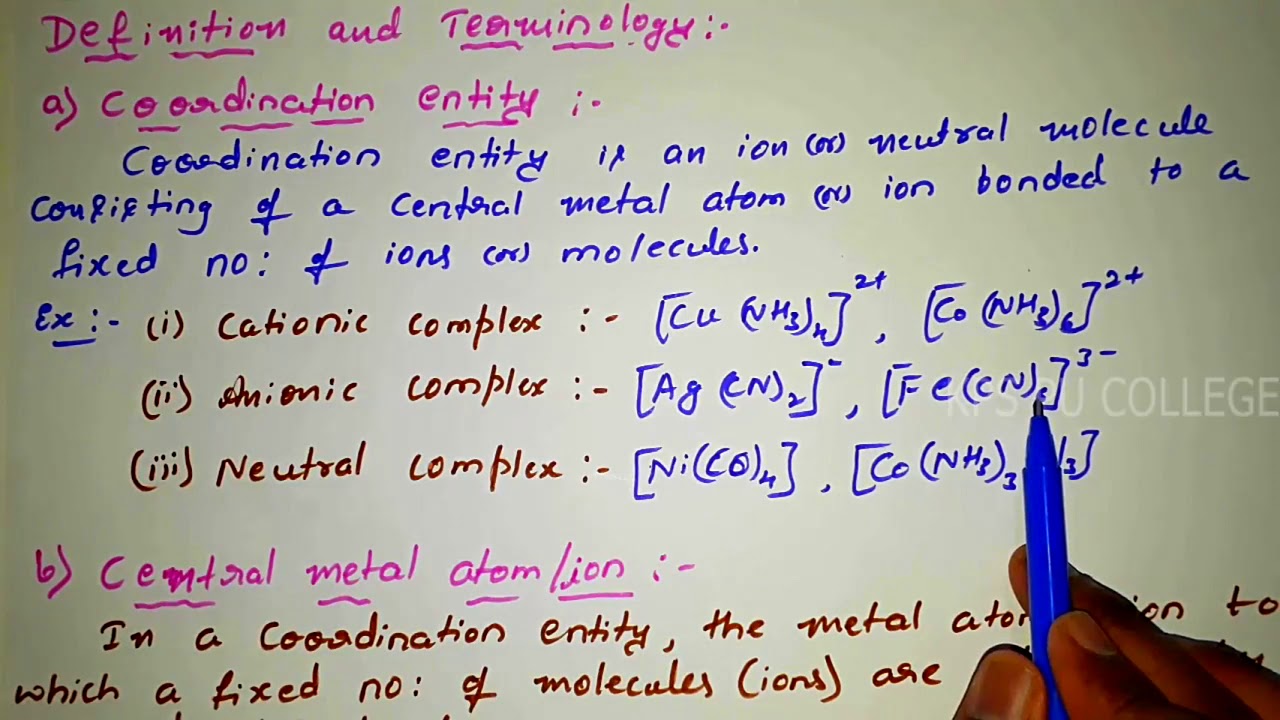 Definition and Terminology:-
a) Coordination entity :-
Coordination entity is an ion (or) neutral molecule
consisting of a central metal atom (or) ion bonded to a
fixed no: of ions (or) molecules.
Ex:- (i) Cationic complex :- [Cu (NH3)4]2+, [Co (NH3)6]2+
(ii) Anionic complex :- [Ag (CN)2]-, [Fe(CN)6]3-
(iii) Neutral complex :- [Ni(CO)4], [Co (NH3)3 l3]
b) Central metal atom/ion :-
In a coordination entity, the metal atom ion to
which a fixed no: of molecules (ions) are
COLLEGE